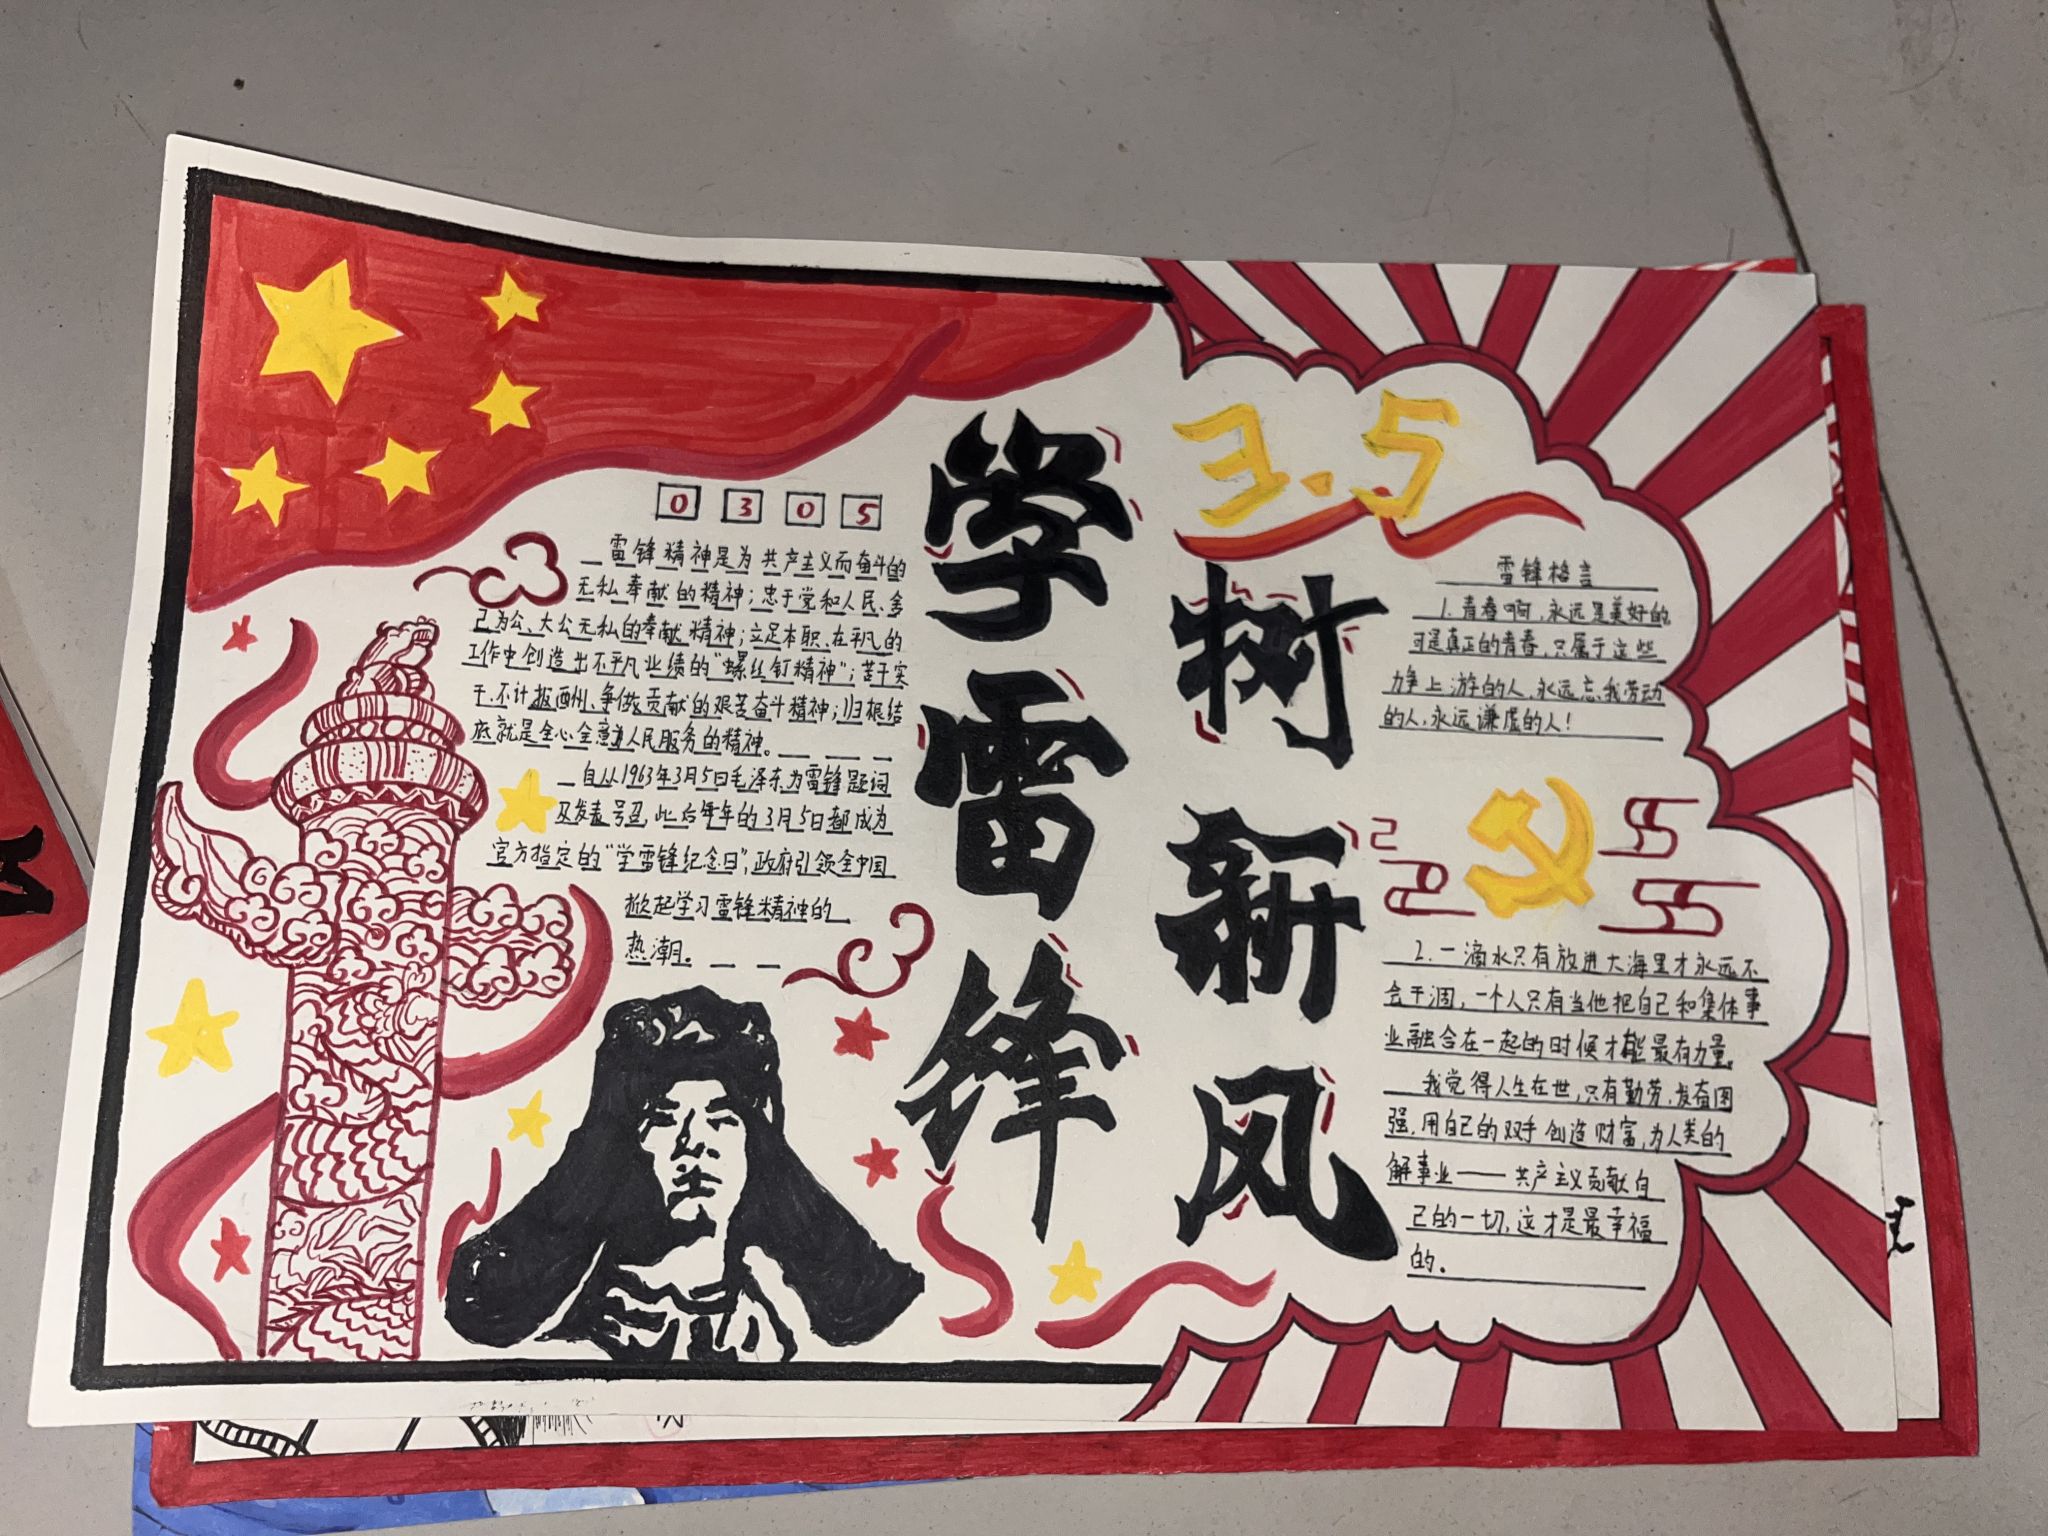 0305
雷锋精神是为共产主义而奋斗的
无私奉献的精神；忠于党和人民、舍
己为公、大公无私的奉献精神；立足本职、在平凡的
工作中创造出不平凡业绩的“螺丝钉精神”；苦干实
干、不计报酬、争做贡献的艰苦奋斗精神；归根结
底就是全心全意为人民服务的精神。
自从1963年3月5日毛泽东为雷锋题词
及发表号召，此后每年的3月5日都成为
官方指定的“学雷锋纪念日”，政府引领全中国
掀起学习雷锋精神的
热潮。
学雷锋
树新风
3.5
雷锋格言
1.青春啊，永远是美好的
可是真正的青春，只属于这些
力争上游的人，永远忘我劳动
的人，永远谦虚的人！
2.一滴水只有放进大海里才永远不
会干涸，一个人只有当他把自己和集体事
业融合在一起的时候才能最有力量。
我觉得人生在世，只有勤劳，发奋图
强，用自己的双手创造财富，为人类的
解事业——共产主义贡献自
己的一切，这才是最幸福
的。